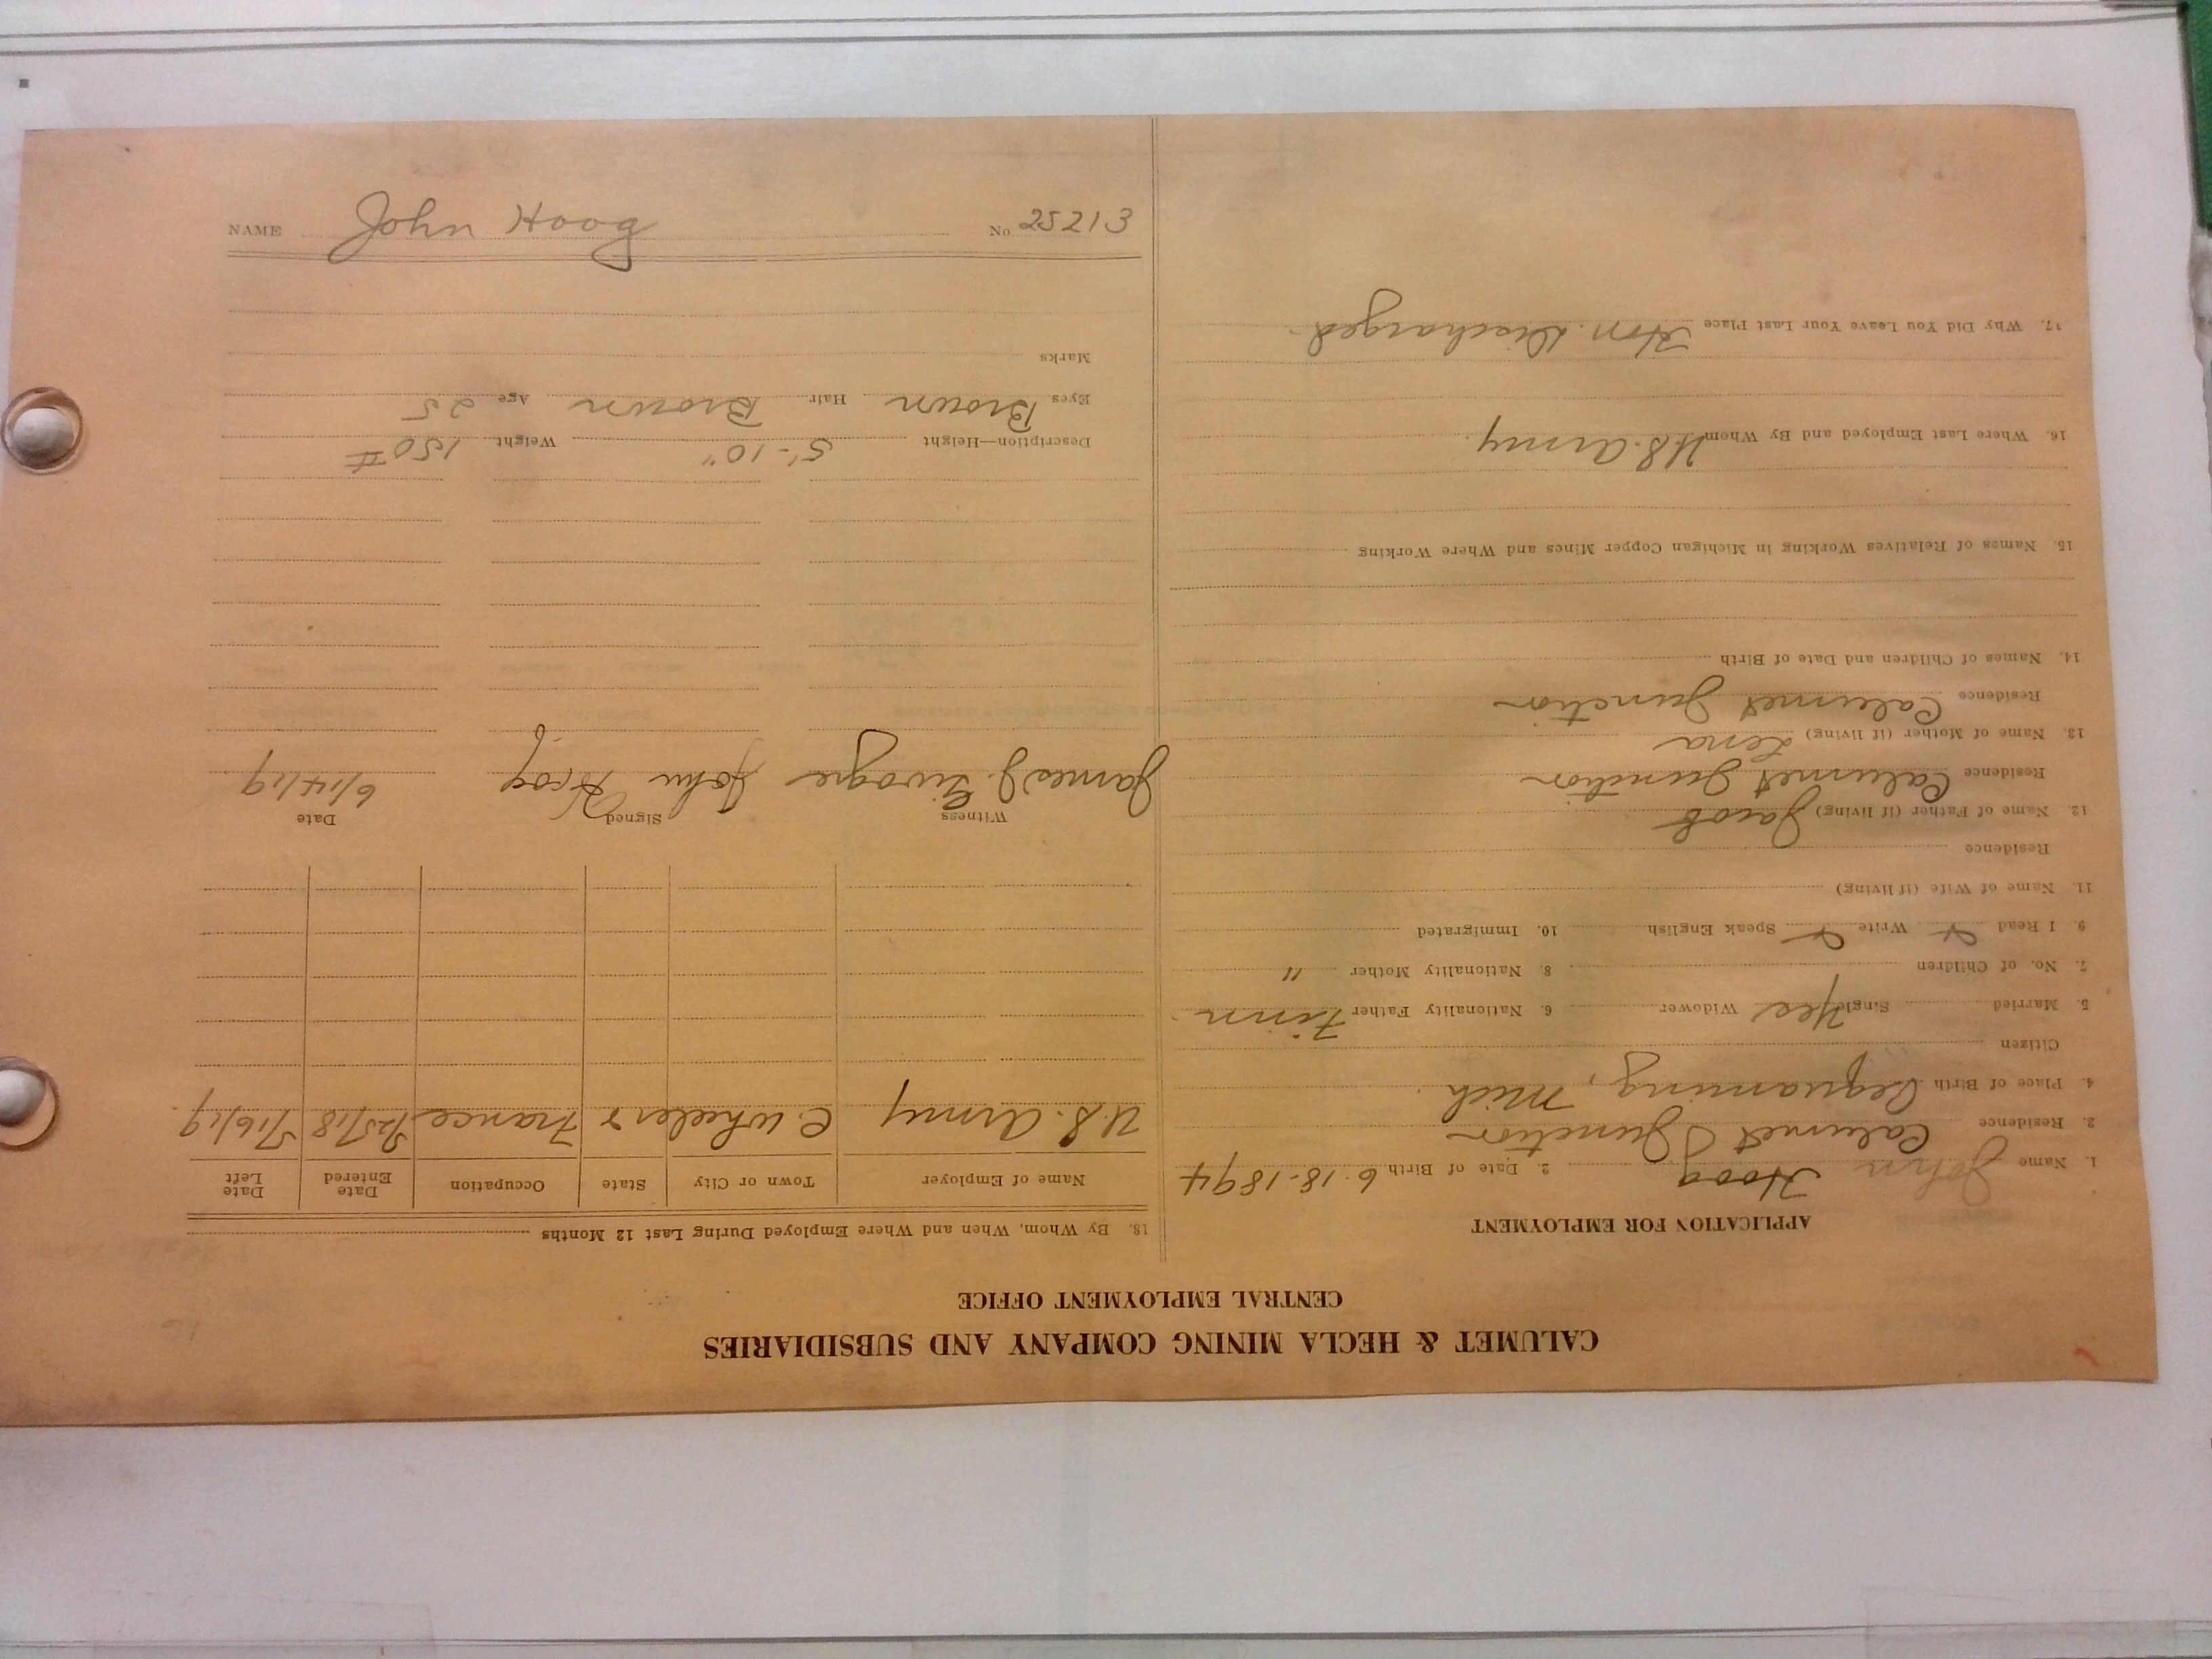 CALUMET & HECLA MINING COMPANY AND SUBSIDIARIES
CENTRAL EMPLOYMENT OFFICE
APPLICATION FOR EMPLOYMENT
1. Name John Hoog 2. Date of Birth 6-18-1894
2. Residence Calumet Junction
4. Place of Birth Pequaming, Mich.
Citizen
5. Married Single Yes Widower 6. Nationality Father Finn
7. No. of Children 8. Nationality Mother "
9. I Read Write Speak English 10. Immigrated
11. Name of Wife (if living)
Residence
12. Name of Father (if living) Jacob
Residence Calumet Junction
13. Name of Mother (if living) Lena
Residence Calumet Junction
14. Names of Children and Date of Birth
15. Names of Relatives Working in Michigan Copper Mines and Where Working
16. Where Last Employed and By Whom U.S. Army.
17. Why Did You Leave Your Last Place Hon. Discharged
18. By Whom, When and Where Employed During Last 12 Months
Name of Employer Town or City State Occupation Date Entered Date Left
U.S. Army C. Wheeler France 5/16/19.
Witness Signed Date
James J. John Hoog 6/14/19.
Description—Height 5'-10" Weight 150 #
Eyes Brown Hair Brown Age 25
Marks
NAME John Hoog No. 25213